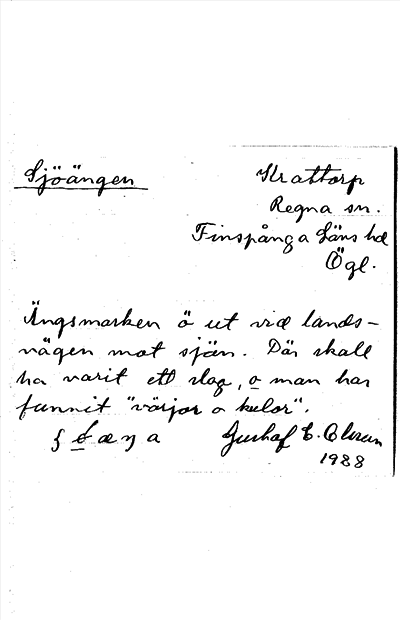 Sjöängen
Krattorp
Regna sn.
Finspånga Läns hd
Ögl.
Ängsmarken ö ut vid lands-
vägen mot sjön. Där skall
ha varit ett slag, o man har
funnit "värjor o kulor".
Gustaf E. Olsson
1988